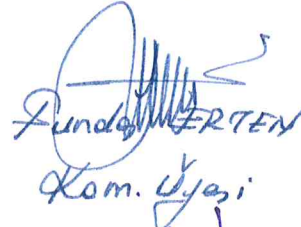 Funda ERTEN
Kom. Üyesi